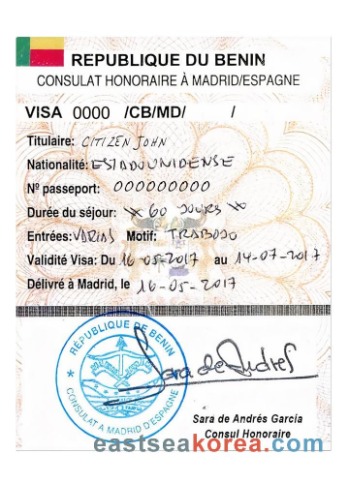 REPUBLIQUE DU BENIN
CONSULAT HONORAIRE À MADRID/ESPAGNE
VISA 0000 /CB/MD/ /
Titulaire: CITIZEN JOHN
Nationalité: ESTADOUNIDENSE
Nº passeport: 000000000
Durée du séjour: * 60 JOURS *
Entrées: VARIAS Motif: TRABAJO
Validité Visa: Du 16-05-2017 au 14-07-2017
Délivré à Madrid, le 16-05-2017
RÉPUBLIQUE DE BENIN
CONSULAT A MADRID D'ESPAGNE
Sara de Andrés
Sara de Andrés García
Consul Honoraire
eastseakorea.com